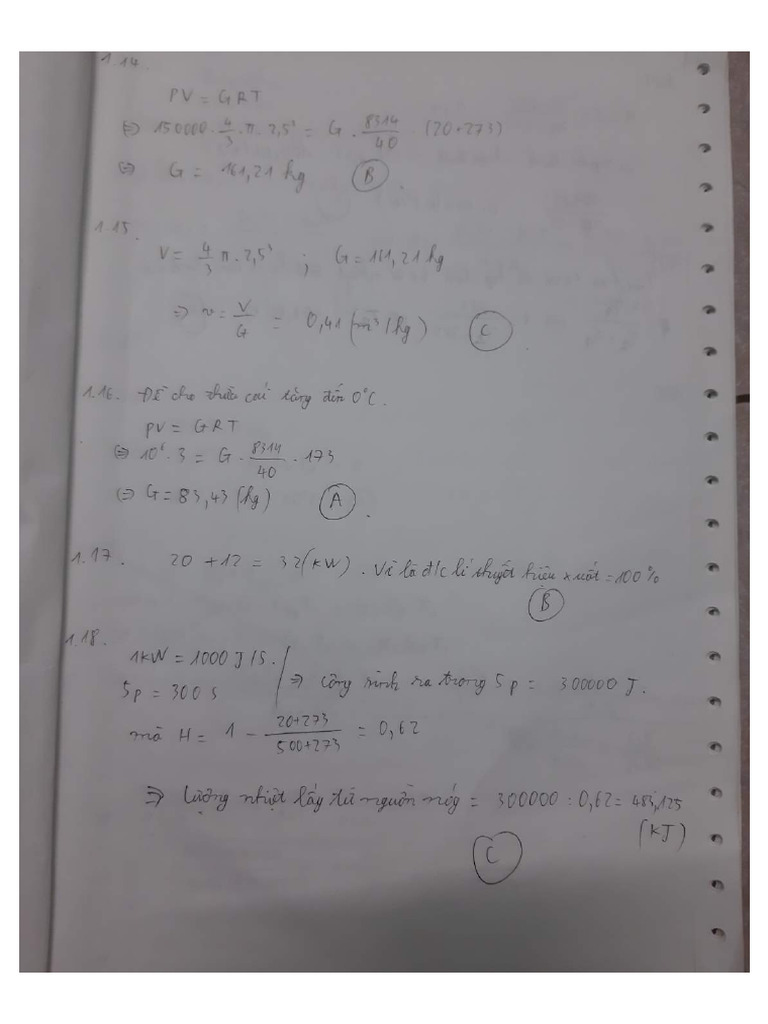 1.14.
PV = GRT
⇔ 150000 . 4/3 . π . 2,5³ = G . 8314/40 . (20+273)
⇔ G = 161,21 kg (B).
1.15.
V = 4/3 π . 2,5³ ; G = 161,21 kg
⇒ v = V/G = 0,41 (m³/kg) (C)
1.16. Đề cho thừa cái tăng đến 0°C.
PV = GRT
⇔ 10⁶ . 3 = G . 8314/40 . 173
⇔ G = 83,43 (kg) (A).
1.17. 20 + 12 = 32 (kW). Vì là đ/c lí thuyết hiệu xuất = 100%
(B)
1.18.
1kW = 1000 J/S.
5p = 300 s
⇒ Công sinh ra trong 5p = 300000 J.
mà H = 1 - 20+273/500+273 = 0,62
⇒ lượng nhiệt lấy từ nguồn nóng = 300000 : 0,62 = 483,125
(kJ)
(C)